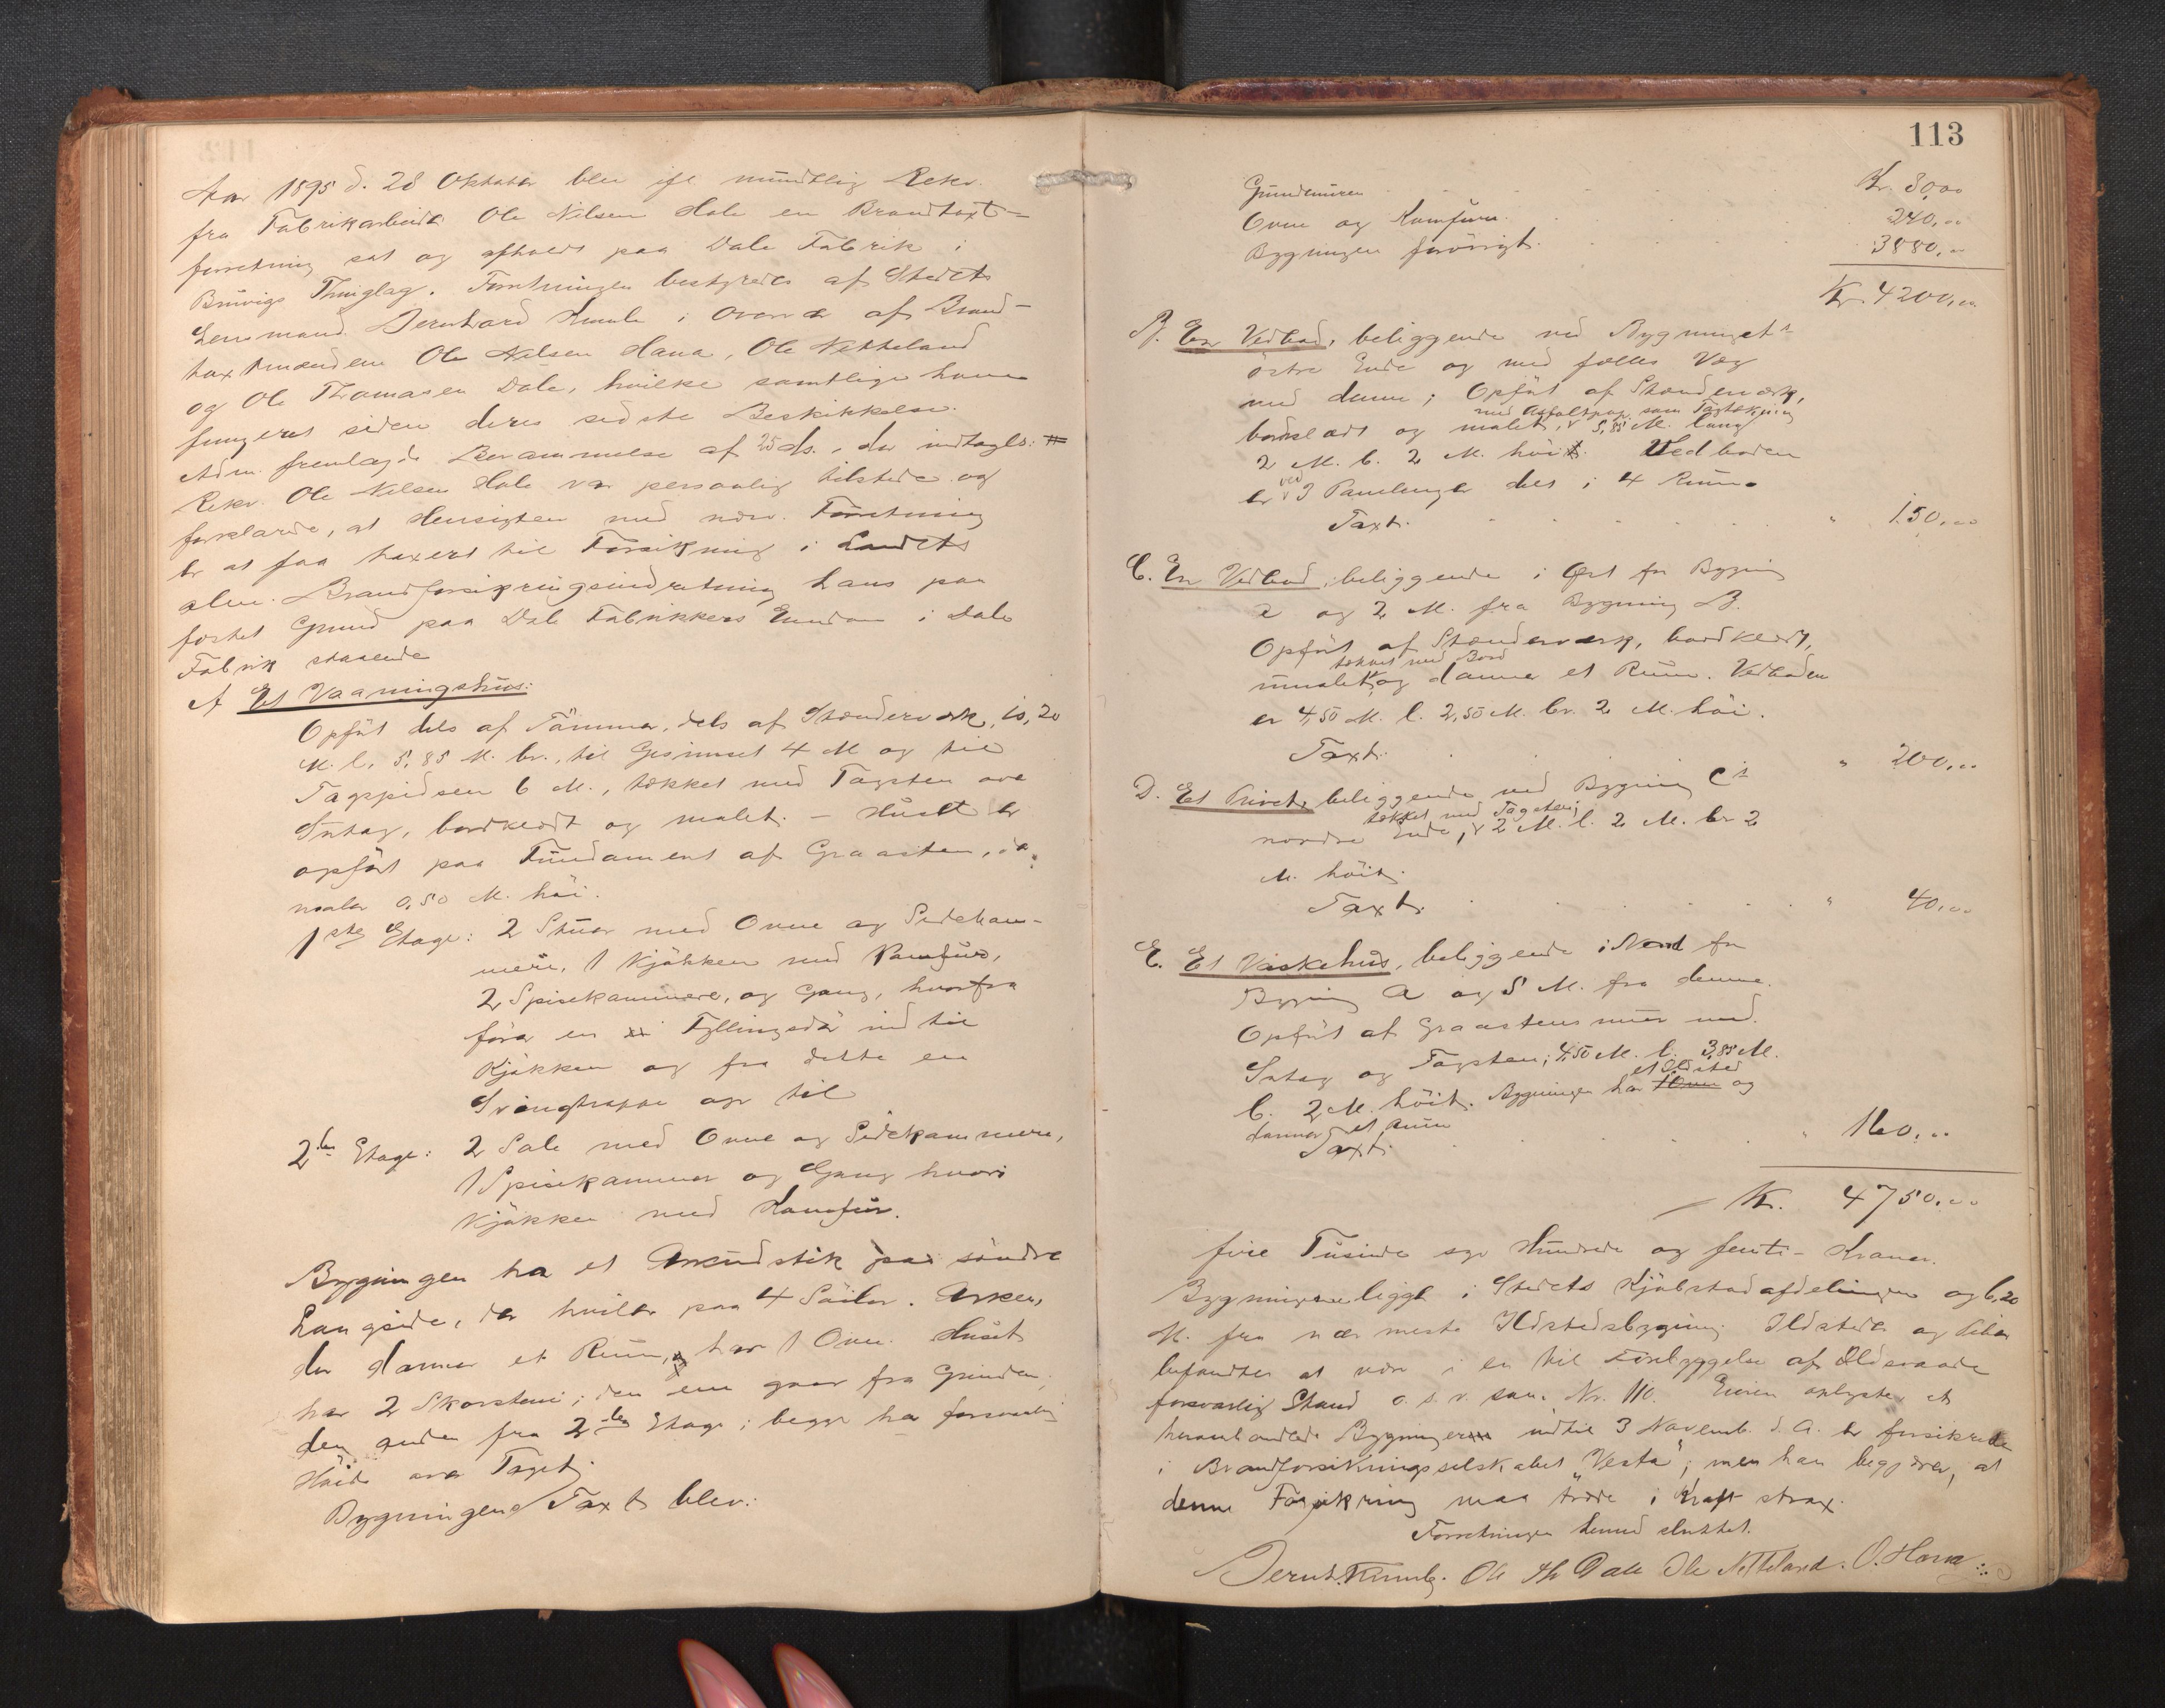 Aar 1895 d. 28 Oktober blev ifl mundtlig Rekv.
fra Fabrikarbeider Ole Nilsen Hole en Brandtaxt-
forretning sat og afholdt paa Dale Fabrik i
Bruvigs Thinglag. Forretningen bestyredes af Stedets
Lensmand Bernhard i Overvær af Brand-
taxtmændene Ole Nilsen Hana, Ole Netteland
og Ole Thomasen Dale, hvilke samtlige have
fungeret siden deres sidste Beskikkelse.
Adm. fremlagde Berammelse af 25 ds., der indtages: #
Rekv. Ole Nilsen Hole var personlig tilstede og
forklarede, at Hensigten med nærv. Forretning
er at faa taxeret til Forsikring i Landets
alm. Brandforsikringsindretning hans paa
festet Grund paa Dale Fabrikkers Eiendom i Dale
Fabrik staaende
A Et Vaaningshus:
Opført dels af Tømmer, dels af Stænderværk, 10,20
M. l. 5,85 M. br., til Gesimset 4 M og til
Tagspidsen 6 M., tækket med Tagsten over
Sutag, bordklædt og malet. - Huset er
opført paa Fundament af Graasten,
0,50 M. høi.
1ste Etage: 2 Stuer med Ovne og Sidekam-
mere, 1 Kjøkken med Komfur,
2 Spisekammere, og Gang, hvorfra
fører en Fyllingsdør ind til
Kjøkken og fra dette en
Svingtrappe op til
2den Etage: 2 Sale med Ovne og Sidekammere,
1 Spisekammer og Gang hvori
Kjøkken med Komfur.
Bygningen har et Arkudstik paa søndre
Langside, der hviler paa 4 Søiler. Arken,
der danner et Rum, har 1 Ovn. Huset
har 2 Skorstene; den ene gaar fra Grunden,
den anden fra 2den Etage; begge har forsvarlig
Høide over Taget.
Bygningens Taxt blev:
113
Grundmuren Kr. 80,00
Ovne og Komfurer 240,00
Bygningen forøvrigt 3880,00
Kr. 4200,00
B. En Vedbod, beliggende ved Bygning et's
østre Ende og med fælles Væg
med denne; Opført af Stænderværk,
med Asfaltpap som Tagtækning
bordklædt og malet, 5,85 M. lang
2 M. b. 2 M. høit. Vedboden
er ved 3 Panelinger delt i 4 Rum.
Taxt. " 150,00
C. En Vedbod, beliggende i Øst for Bygning
a og 2 M. fra Bygning B.
Opført af Stænderværk, bordklædt,
tækket med Bord
umalet og danner et Rum. Vedboden
er 4,50 M. l. 2,50 M. br. 2 M. høi.
Taxt. " 200,00
D. Et Privet, beliggende ved Bygning C's
tækket med Tagsten;
nordre Ende, 2 M. l. 2 M. br 2
M. høit.
Taxt. " 40,00
E. Et Vaskehus, beliggende i Nord for
Bygning a og 5 M. fra denne.
Opført af Graastensmur med
Sutag og Tagsten; 4,50 M. l. 3,85 M.
et Ildsted
b. 2 M. høit. Bygningen har 1 Ovn og
danner et Rum
Taxt. " 160,00
Kr. 4750,00
fire Tusinde syv Hundrede og femti - Kroner.
Bygningerne ligge i Stedets Kjøbstadafdelingen og 6,20
M. fra nærmeste Ildstedsbygning. Ildsteder og Piber
befandtes at være i en til Forebyggelse af Ildsvaade
forsvarlig Stand o. s. v. som Nr. 110. Eieren oplyste, at
heromhandlede Bygninger indtil 3 Novemb. d. A. er forsikrede
i Brandforsikringsselskabet "Vesta", men han begjærer, at
denne Forsikring maa træde i Kraft strax.
Forretningen dermed sluttet.
Ole Th Dale Ole Netteland. O. Hana